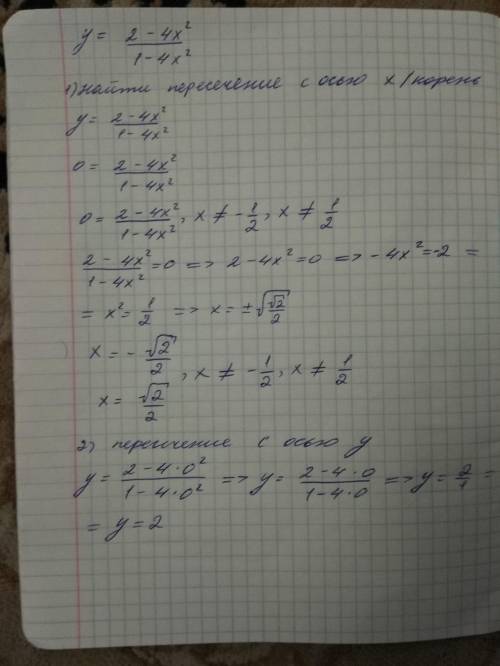 y = (2 - 4x²)/(1 - 4x²)
1) Найти пересечение с осью x / корень
y = (2 - 4x²)/(1 - 4x²)
0 = (2 - 4x²)/(1 - 4x²)
0 = (2 - 4x²)/(1 - 4x²), x ≠ -1/2, x ≠ 1/2
(2 - 4x²)/(1 - 4x²) = 0 => 2 - 4x² = 0 => -4x² = -2 =
= x² = 1/2 => x = ±√(√2/2)
x = -√2/2
, x ≠ -1/2, x ≠ 1/2
x = √2/2
2) пересичение с осью y
y = (2 - 4·0²)/(1 - 4·0²) => y = (2 - 4·0)/(1 - 4·0) => y = 2/1 =
= y = 2